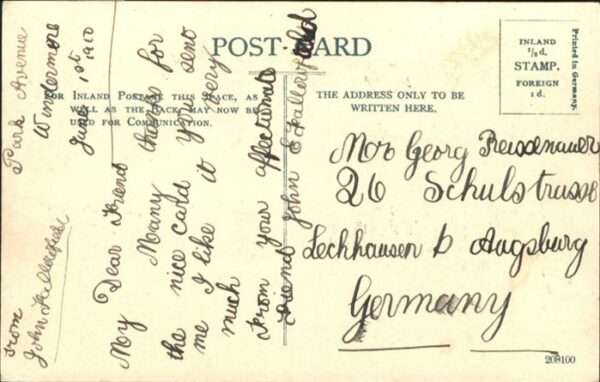 POST-CARD
FOR INLAND POSTAGE THIS SPACE, AS
WELL AS THE BACK, MAY NOW BE
USED FOR COMMUNICATION.
THE ADDRESS ONLY TO BE
WRITTEN HERE.
INLAND
½d.
STAMP.
FOREIGN
1d.
Printed in Germany.
Park Avenue
Windermere
June 1st 1910
My Dear Friend
Many thanks for
the nice card you send
me I like it very
much
From your affectionate
friend John E Fallowfield
From
John Fallowfield
Georg Reissenauer
26 Schulstrasse
Lechhausen b Augsburg
Germany
208100